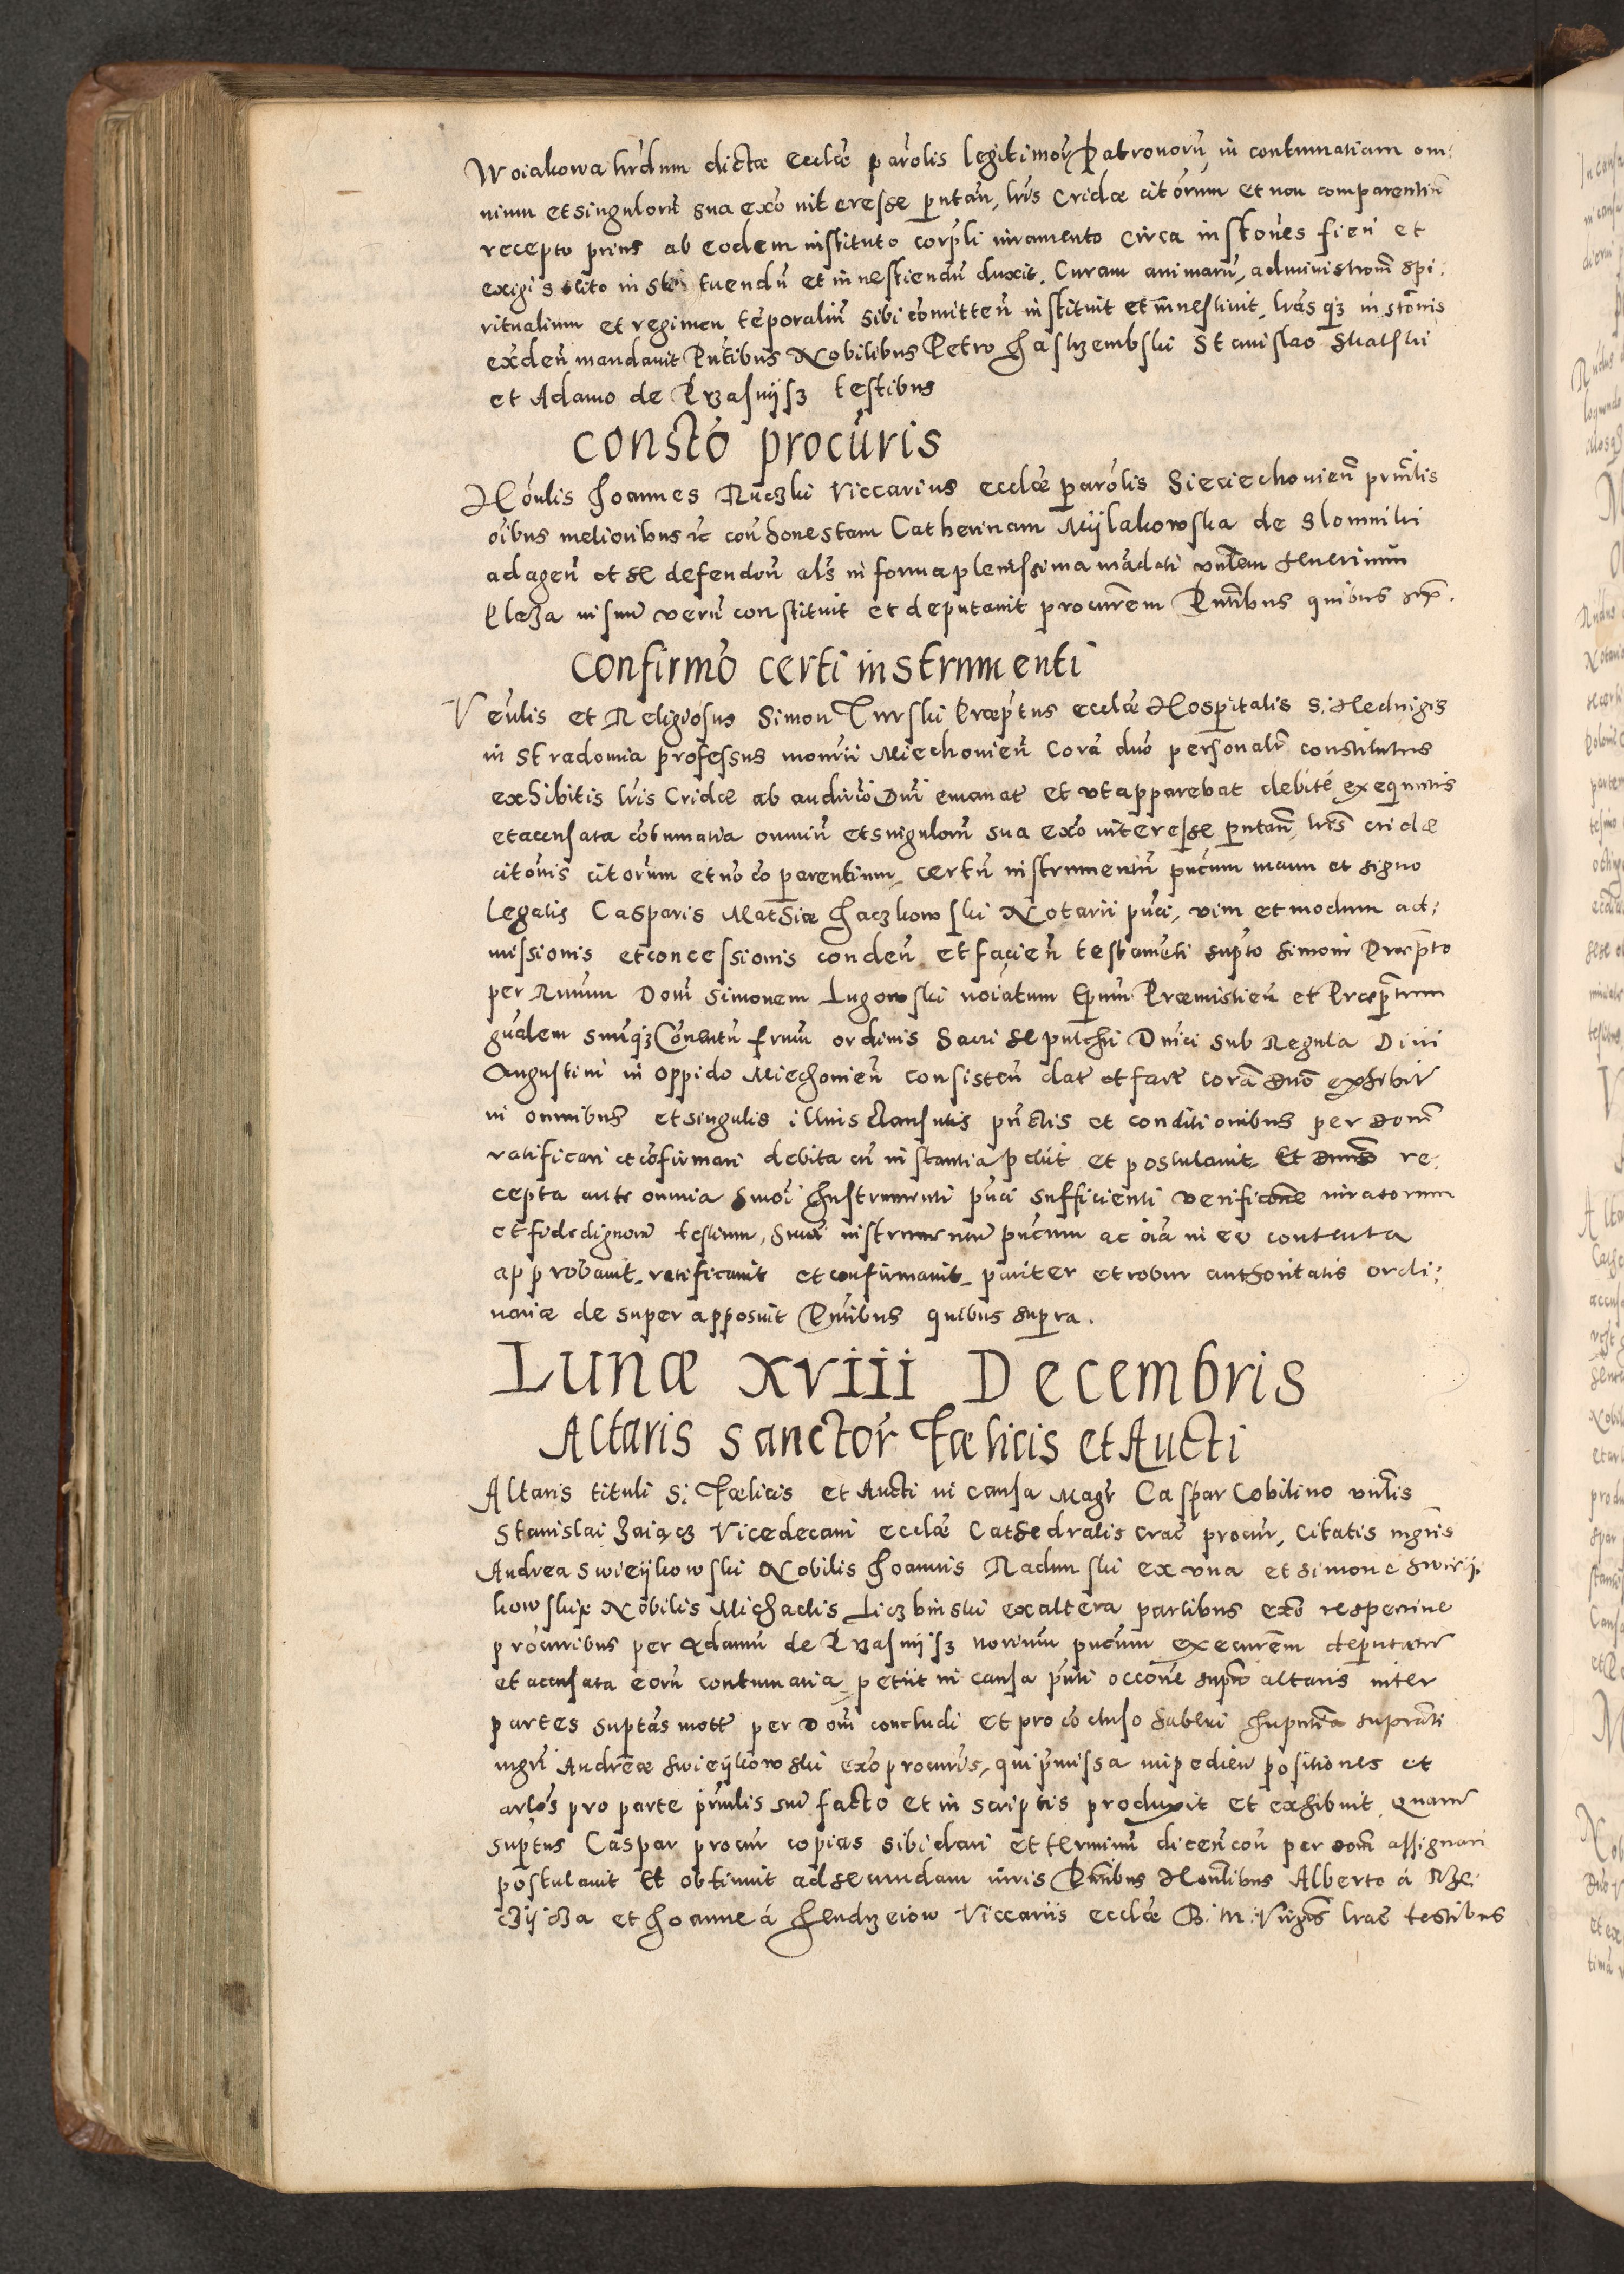 Woiakowa hrdum dictæ Ecclæ parolis legitimor Patronorũ, in contumatiam om:
nium et singulorũ sua exõ interesse putañ, lris Cridæ citorum et non comparentiũ
recepto prius ab eodem instituto corpli iuramento circa institones fieri et
exigi solito instituendũ et inuestiendũ duxit. Curam animarũ, administronem spi:
ritualium et regimen têporaliũ sibi cõmitteñ instituit et inuestiuit, lrãs qz instonis
exdeñ mandauit Pntibus Nobilibus Petro Jastrzembski Stanislao Skarski
et Adamo de Przasnijsz testibus
Constõ procuris
Honlis Joannes Ruczki Viccarius ecclæ parolis Sieciechouieñ prñtlis
oibus melioribus ꝛc coñ honestam Catherinam Mijlakowska de Slomniki
ad ageñ et se defendeñ als in forma plenissima mãdati
in suũ verũ constituit et deputauit procurem Pntibus quibus sup.
Confirmõ certi instrumenti
Venlis et Religiosus Simon Turski Præptus ecclæ Hospitalis S. Heduigis
in Stradomia professus monrii Miechouieñ Corã dnõ personalr constitutus
exhibitis lris Cridæ ab audirio Dni emanat et vt apparebat debitè exequutis
et accusata cõtumatia omniũ et singulorũ sua exõ interesse putañ, lris cridæ
citonis citorum et nõ cõparentium, certũ instrumentũ pucum manu et signo
legalis Casparis Mathiæ Jaczkowski Notarii puci, vim et modum ad:
missionis et concessionis condeñ et facieñ testamẽti supto Simoni Præpto
per Rmum Dom Simonem Lugowski noiatum Epum Præmislieñ et Præptum
gnalem suũqz Conuentũ frum ordinis Sacri Sepulchri Dnici sub Regula Diui
Augustini in oppido Miechouieñ consisteñ dat et fact corã dnõ exhibit
in omnibus et singulis illius clausulis puctis et conditionibus per dom
ratificari et cõfirmari debita cũ instantia petiit et postulauit. Et dnus re:
cepta ante omnia smoi Instrumenti puci sufficienti verificone iuratorum
et fidedignorũ testium, smoi instrumentum pucum ac oia in eo contenta
approbauit, ratificauit et confirmauit, pariter et robur authoritatis ordi:
nariæ desuper apposuit Pntibus quibus supra.
Lunæ XVIII Decembris
Altaris Sanctor Fœlicis et Aucti
Altaris tituli S. Fœlicis et Aucti in causa Magr Caspar Cobilino vnlis
Stanislai Zaiącz Vicedecani ecclæ Cathedralis crac procur, citatis mgris
Andrea Swieijkowski Nobilis Joannis Radunski ex vna et Simone Swirij:
kowski Nobilis Michaelis Liczbinski ex altera partibus exõ respectiue
procuribus per Adamũ de Przasnijsz norium pucum executorem deputatum
et accusata eorũ contumatia, petiit in causa pnti occone supti altaris inter
partes suptas mott per Dom concludi et pro cõcluso haberi Inputia suprati
mgri Andreæ Swieijkowski exõ procuris, qui pmissa impedieñ positiones et
arlos pro parte prnlis sui facto et in scriptis produxit et exhibuit, quarũ
suptus Caspar procur copias sibi dari et terminũ diceñ coñ per dom assignari
postulauit Et obtinuit ad secundam iuris Pntibus Honlibus Alberto á Rze:
czijcza et Joanne á Jendrzeiow Viccariis ecclæ B. M. Virgis crac testibus